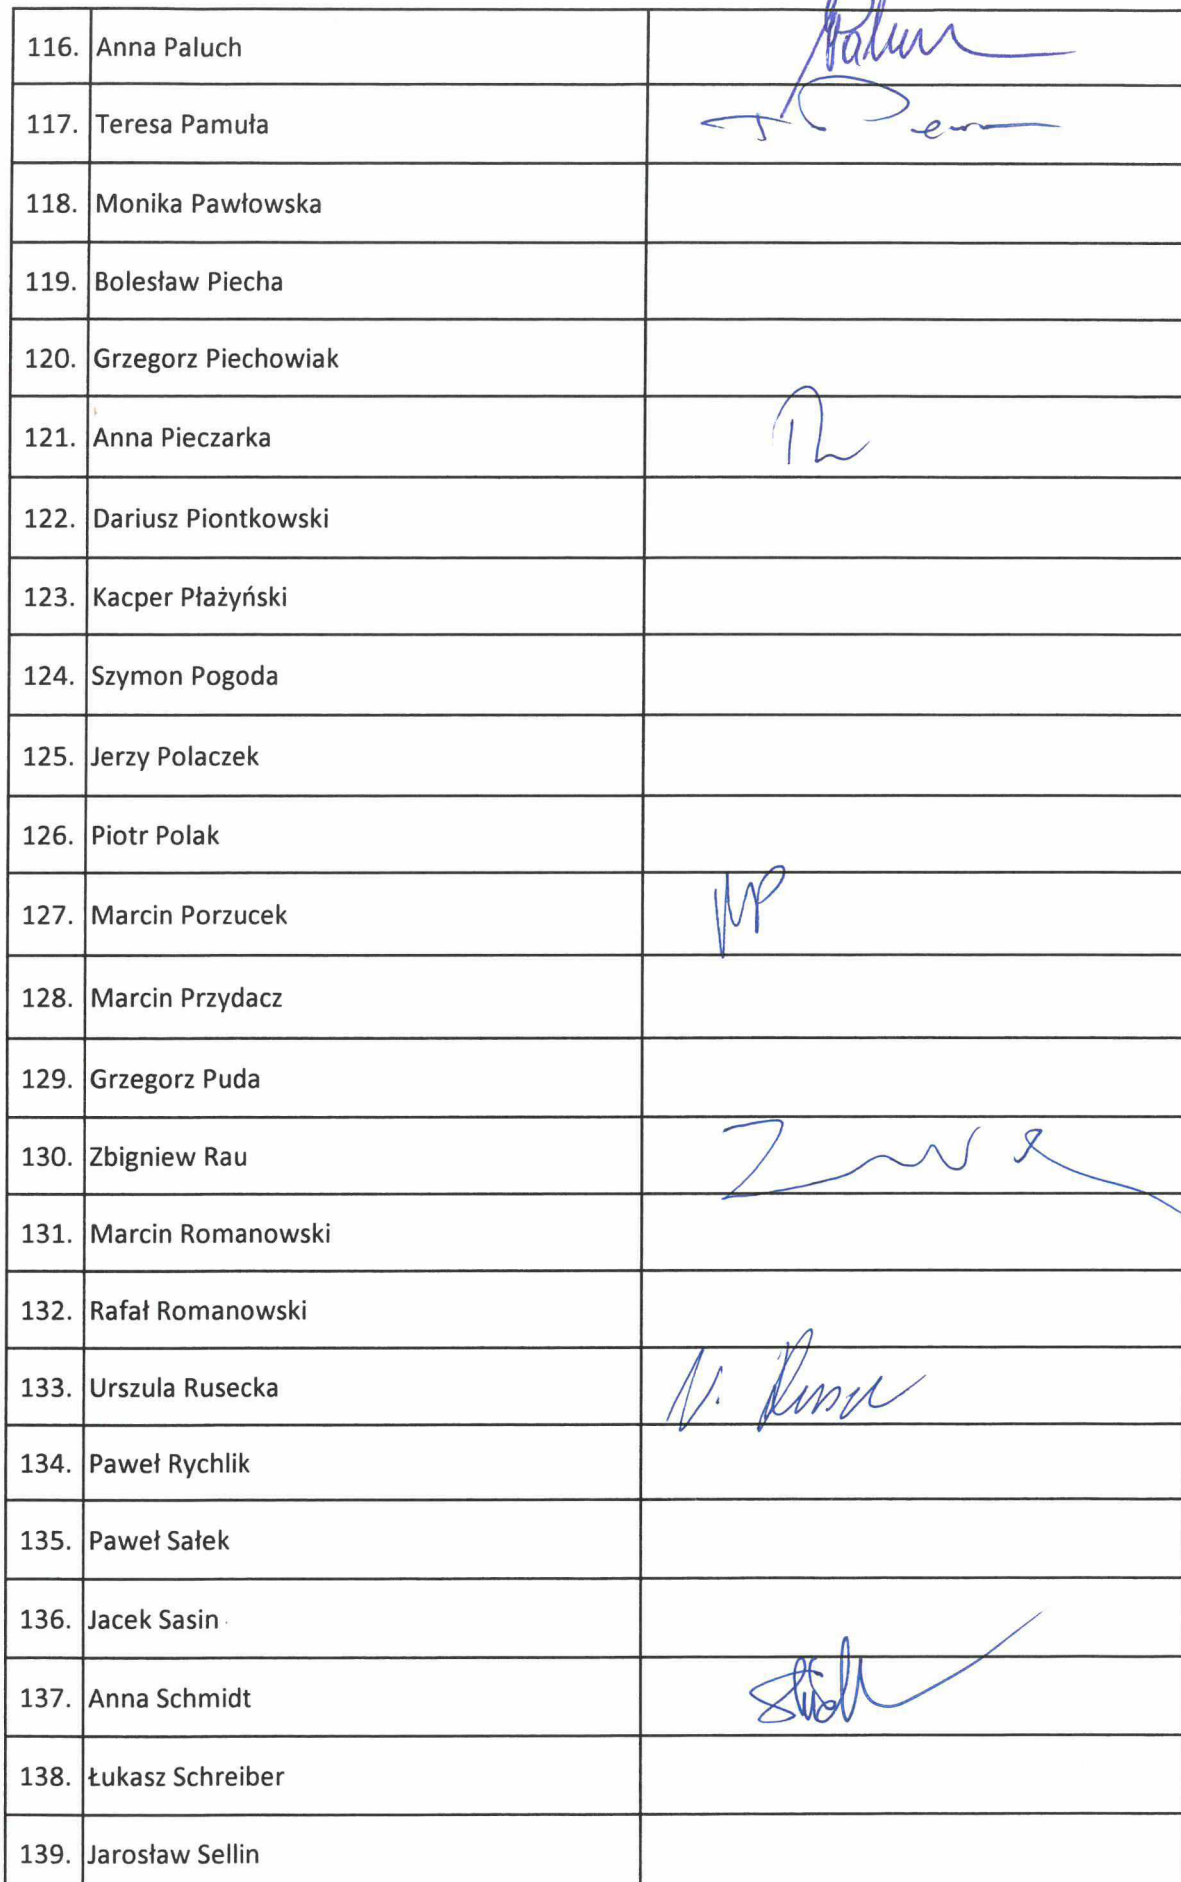 116. Anna Paluch
117. Teresa Pamuła
118. Monika Pawłowska
119. Bolesław Piecha
120. Grzegorz Piechowiak
121. Anna Pieczarka
122. Dariusz Piontkowski
123. Kacper Płażyński
124. Szymon Pogoda
125. Jerzy Polaczek
126. Piotr Polak
127. Marcin Porzucek MP
128. Marcin Przydacz
129. Grzegorz Puda
130. Zbigniew Rau
131. Marcin Romanowski
132. Rafał Romanowski
133. Urszula Rusecka
134. Paweł Rychlik
135. Paweł Sałek
136. Jacek Sasin
137. Anna Schmidt
138. Łukasz Schreiber
139. Jarosław Sellin